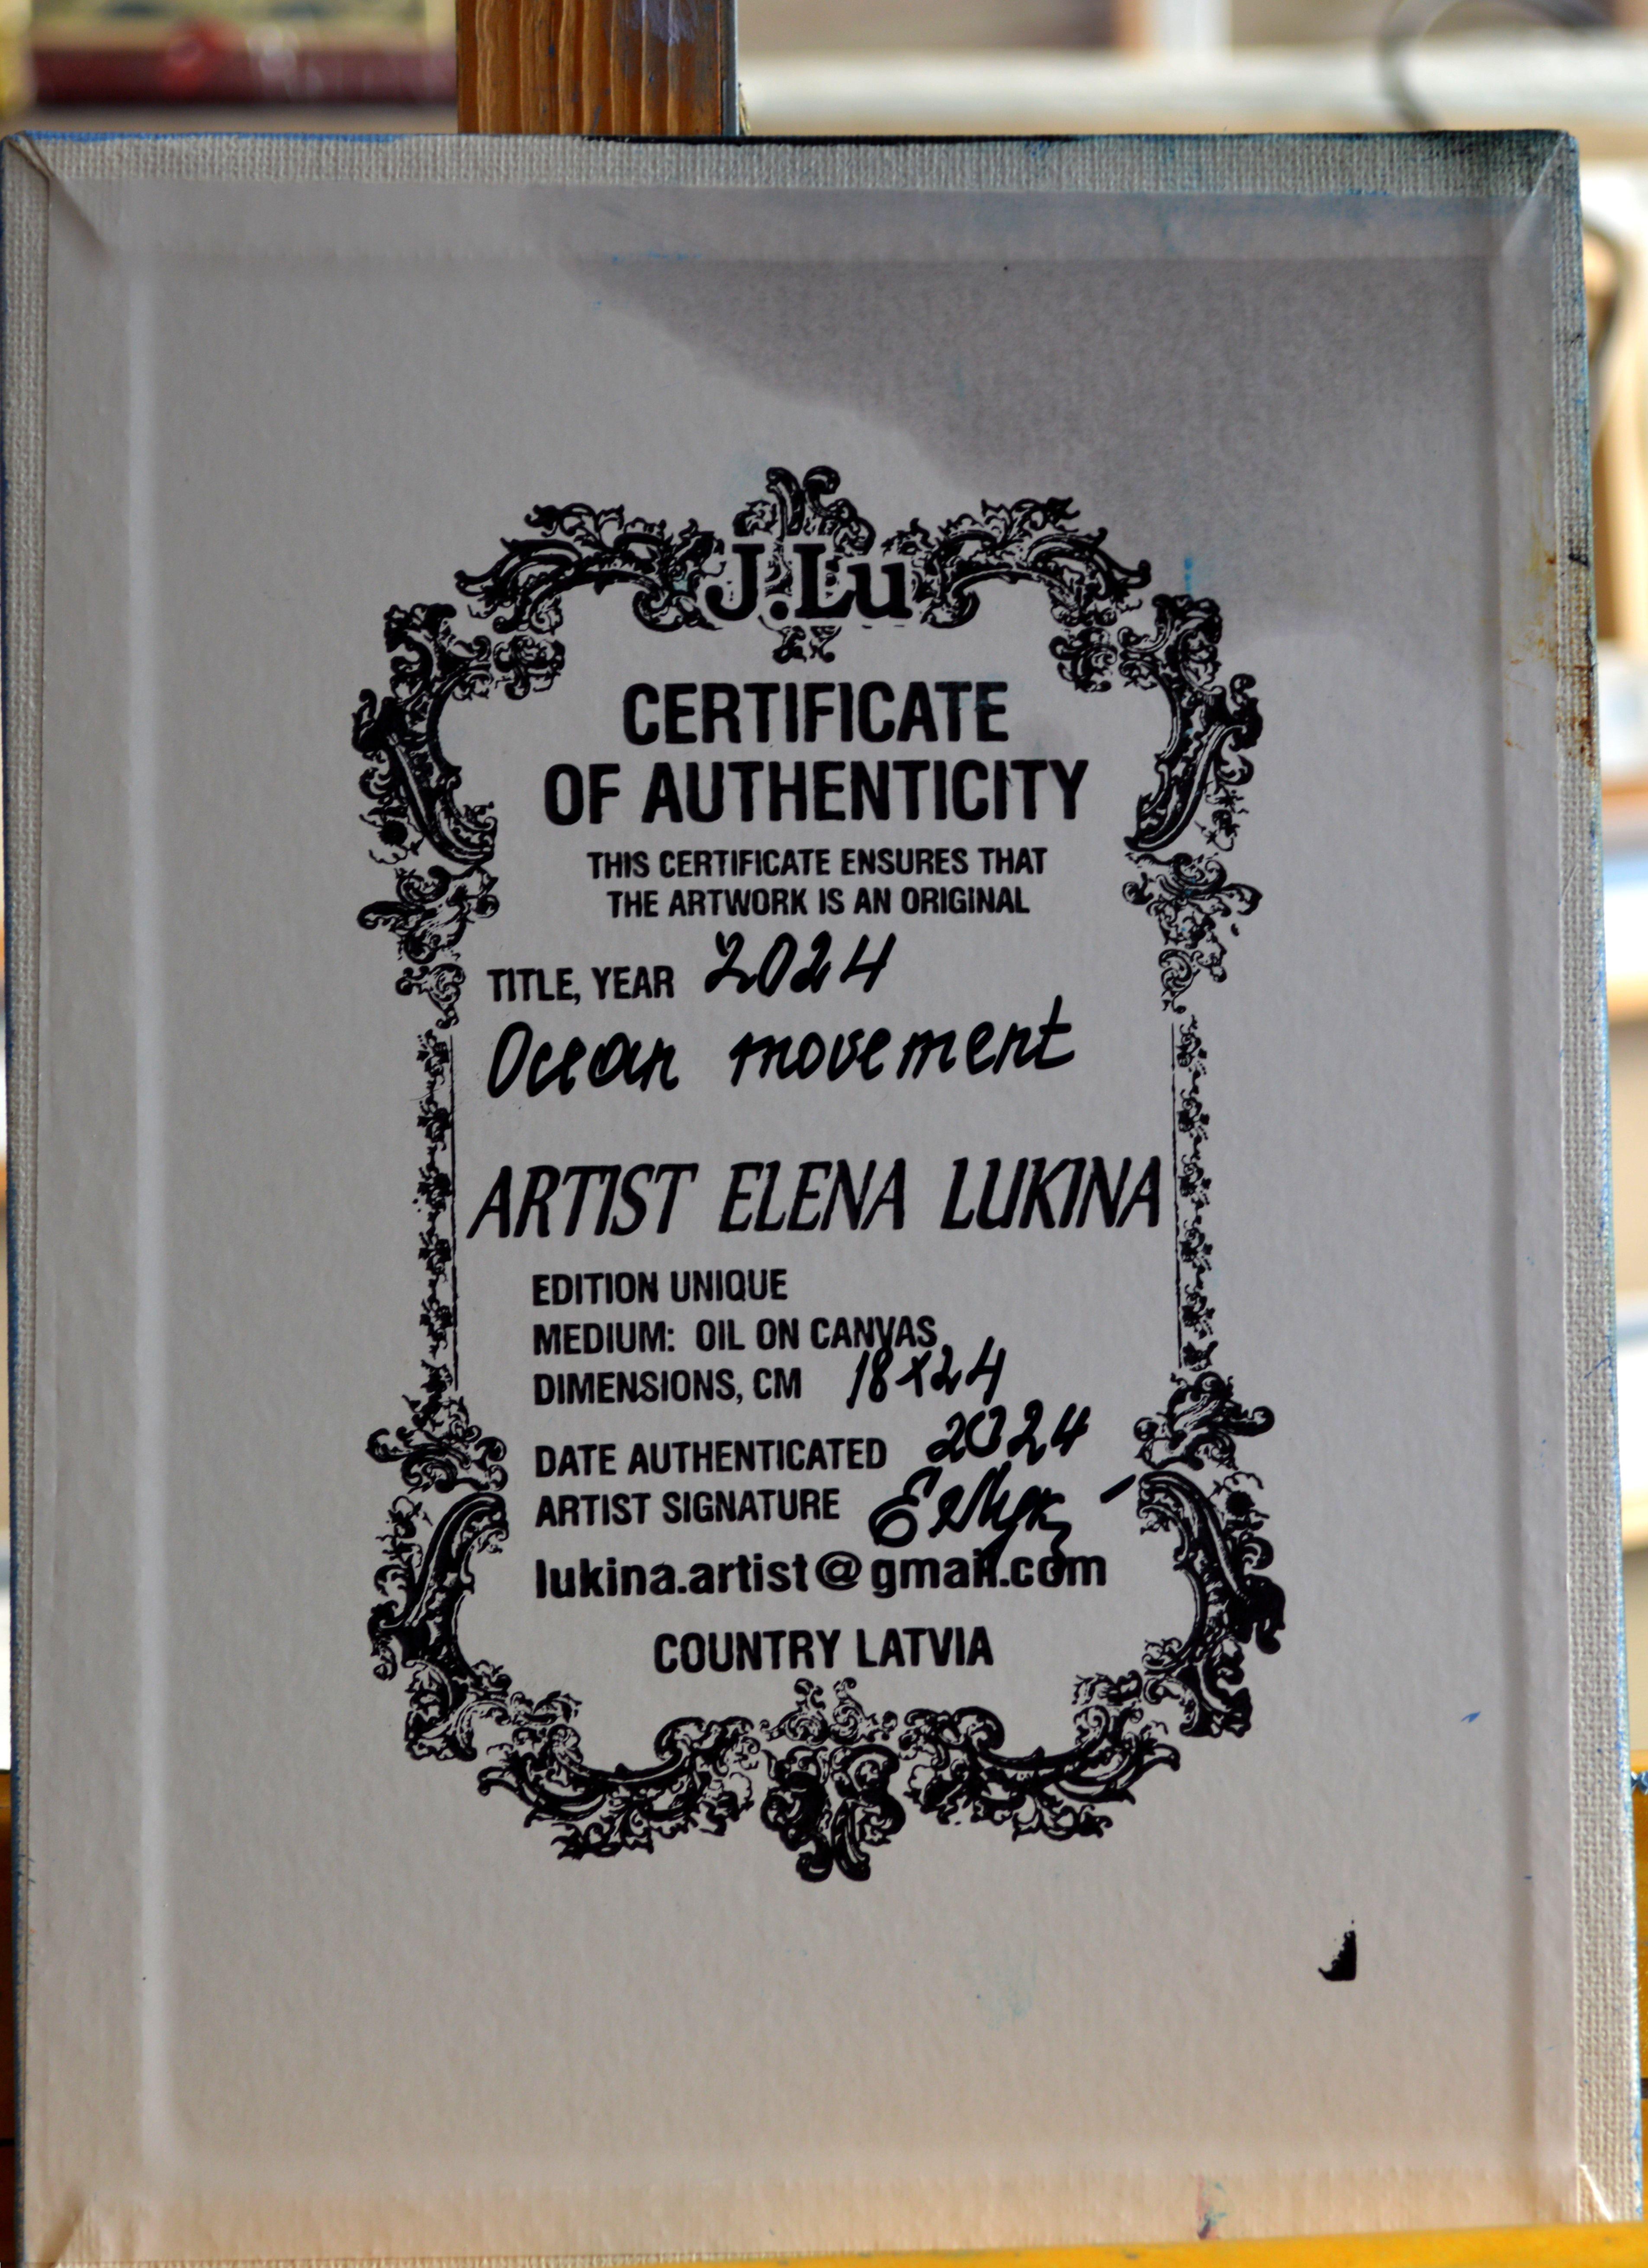 J.Lu
CERTIFICATE
OF AUTHENTICITY
THIS CERTIFICATE ENSURES THAT
THE ARTWORK IS AN ORIGINAL
TITLE, YEAR 2024
Ocean movement
ARTIST ELENA LUKINA
EDITION UNIQUE
MEDIUM: OIL ON CANVAS
DIMENSIONS, CM 18x24
DATE AUTHENTICATED 2024
ARTIST SIGNATURE
lukina.artist@gmail.com
COUNTRY LATVIA